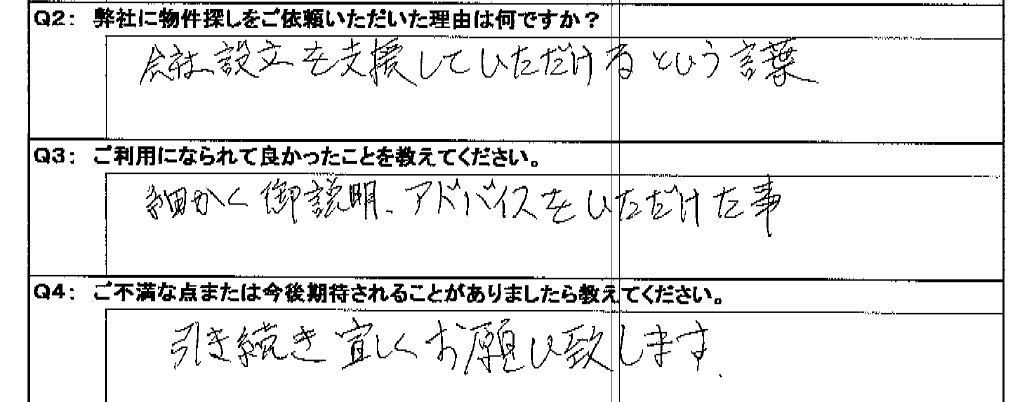 Q2: 弊社に物件探しをご依頼いただいた理由は何ですか？
会社設立を支援していただけるという言葉
Q3: ご利用になられて良かったことを教えてください。
細かく御説明、アドバイスをいただけた事
Q4: ご不満な点または今後期待されることがありましたら教えてください。
引き続き宜しくお願い致します.